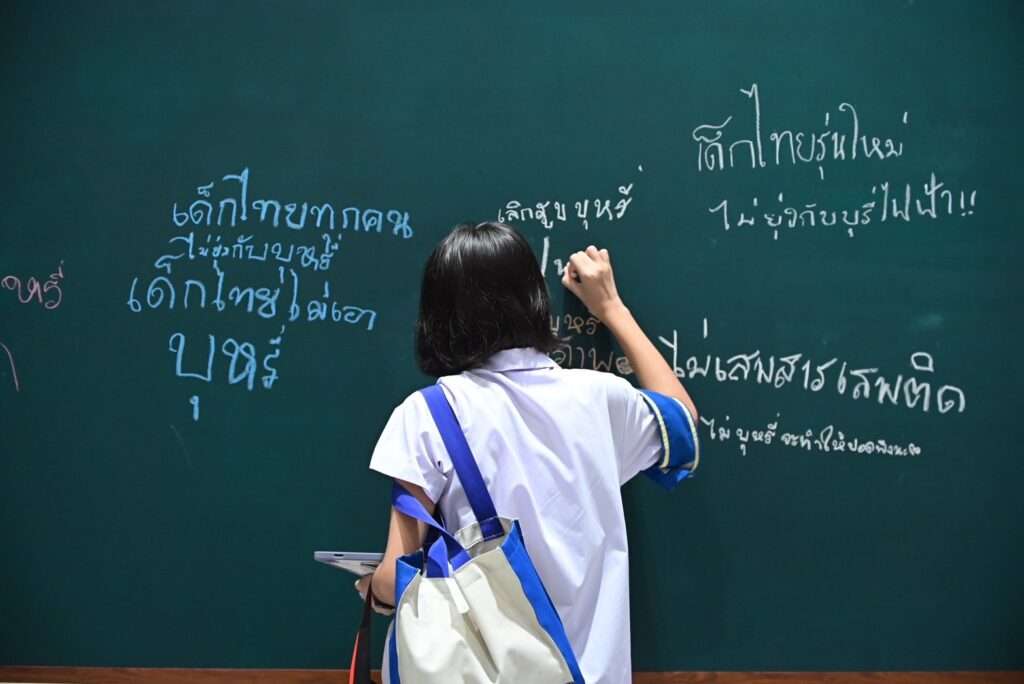 เด็กไทยทุกคน
ไม่ยุ่งกับบุหรี่
เด็กไทยไม่เอา
บุหรี่
เลิกสูบบุหรี่
บุหรี่
เด็กไทยรุ่นใหม่
ไม่ยุ่งกับบุรี่ไฟฟ้า!!
ไม่เสพสารเสพติด
ไม่บุหรี่จะทำให้ปอดพังนะ